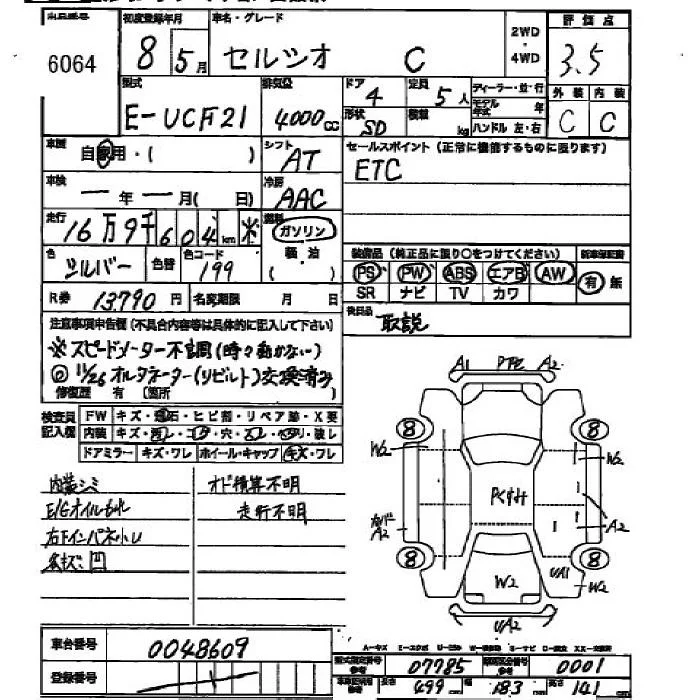 出品番号 初度登録年月 車名・グレード 2WD・4WD 評価点
6064 8年5月 セルシオ C 3.5
型式 排気量 ドア 定員 ディーラー・並・行 外装 内装
E-UCF21 4000cc 4 5人 モデル年式 年 C C
形状 SD 積載 kg ハンドル 左・右
車歴 自家用・( ) シフト AT セールスポイント(正常に機能するものに限ります)
ETC
車検 ー年ー月( 日) 冷房 AAC
走行 16万9千604km ※ 燃料 ガソリン 軽油 ( )
装備品(純正品に限り○をつけてください) 新車保証書
色 シルバー 色替 色コード 199
PS PW ABS エアB AW 有・無
SR ナビ TV カワ
R券 13,790円 名変期限 月 日
後日品 取説
注意事項申告欄(不具合内容等は具体的に記入して下さい)
※スピードメーター不調(時々動かない)
◎11/26オルタネーター(リビルト)交換済み
修復歴 有 〔箇所
検査員記入欄 FW キズ・飛石・ヒビ割・リペア跡・X要
内装 キズ・汚レ・コゲ・穴・スレ・ヘタリ・破レ
ドアミラー キズ・ワレ ホイール・キャップ キズ・ワレ
内装シミ オド積算不明
E/Gオイルもれ 走行不明
右下インパネ小し
各キズ:凹
A1 PTE A2
8 8
W2 W2
PKすみ
カバド A2 A2
8 8
W2 UA1 W2
UA2
車台番号 0048609
登録番号
A-キズ E-エクボ U-凹み W-波あり S-サビ C-腐食 XX-交換済
型式指定番号 07785 類別区分番号 0001
長さ 499 幅 183 高さ 141